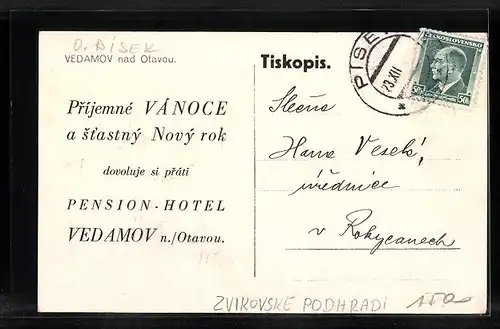 O. PÍSEK
VEDAMOV nad Otavou.
Příjemné VÁNOCE
a šťastný Nový rok
dovoluje si přáti
PENSION - HOTEL
VEDAMOV n./Otavou.
Tiskopis.
PÍSE
23.XII
ČESKOSLOVENSKO
50h 50h
Slečna
Hana Veselá,
úřednice
v Rokycanech
ZVIKOVSKE PODHRADI